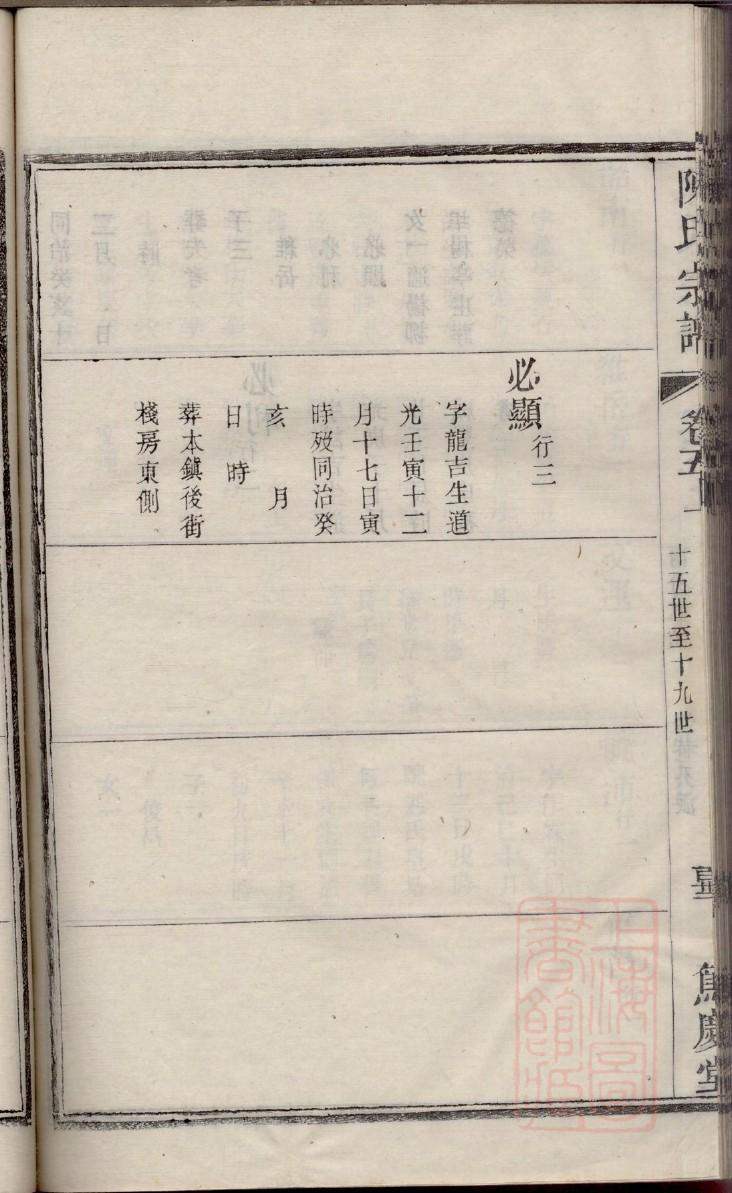 陳氏宗譜
卷五上
十五世至十九世
慶堂
必顯行三
字龍吉生道
光壬寅十二
月十七日寅
時歿同治癸
亥 月
日 時
葬本鎮後街
棧房東側
上海圖書館藏